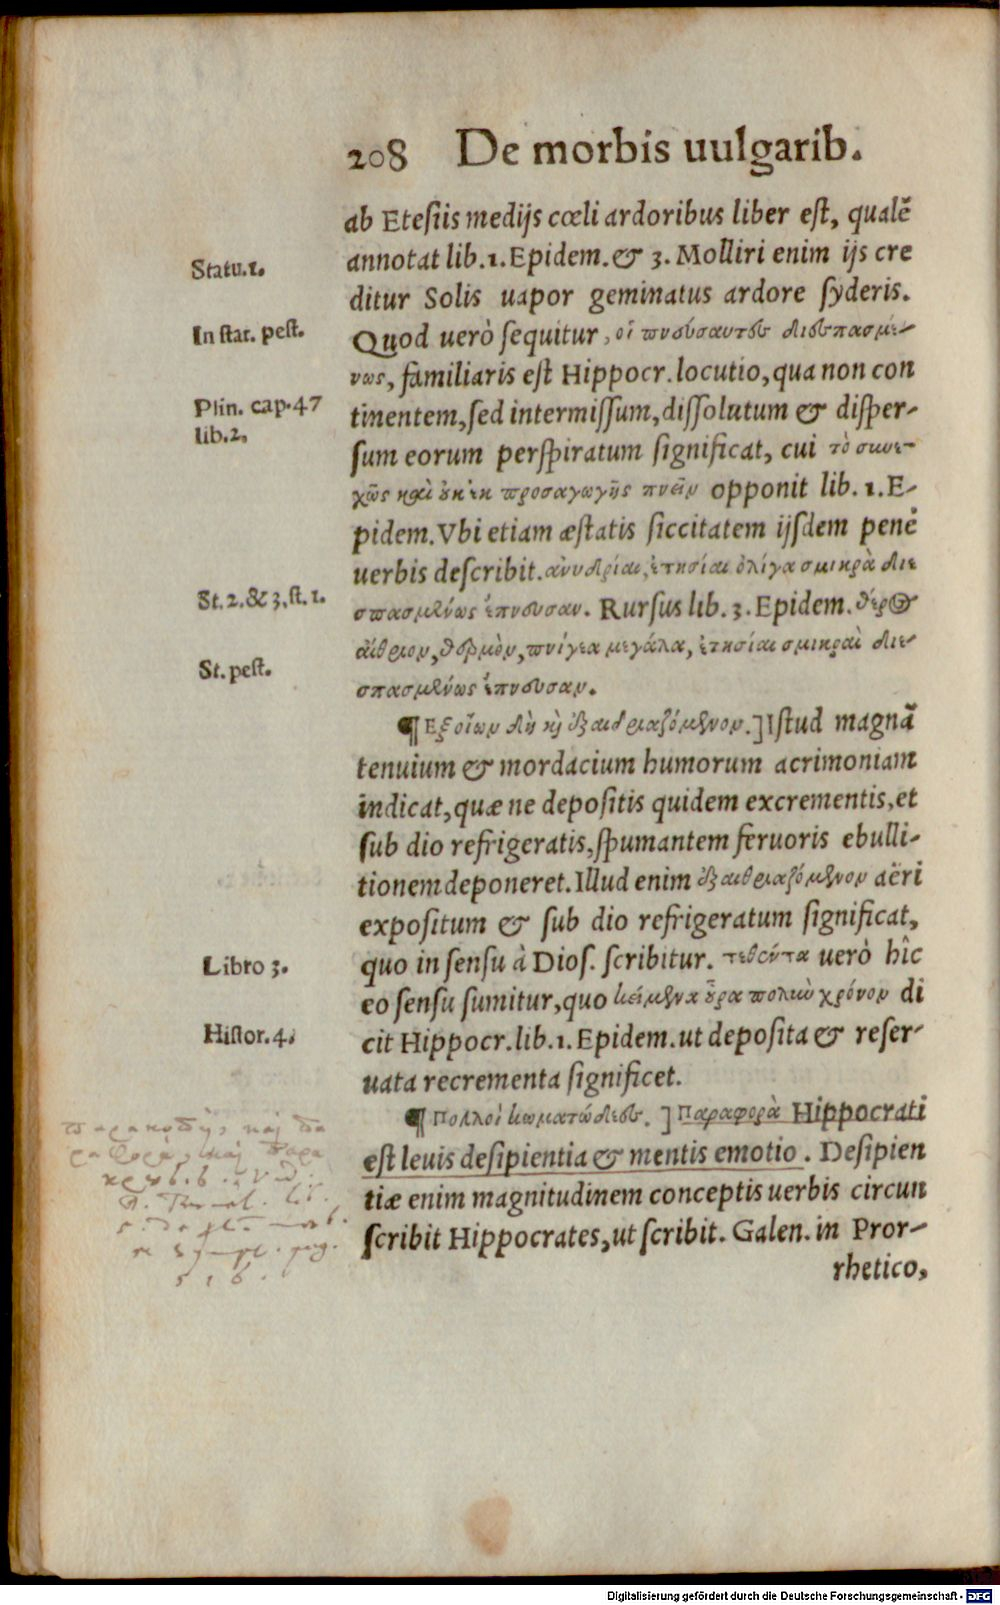 208 De morbis uulgarib.
ab Etesiis medijs cœli ardoribus liber est, qualẽ
Statu.1.
annotat lib.1.Epidem.& 3. Molliri enim ijs cre
ditur Solis uapor geminatus ardore syderis.
In stat. pest.
Quod uerò sequitur, οἱ πνεύσαντες διεσπασμέ-
νως, familiaris est Hippocr. locutio, qua non con
Plin. cap.47
lib.2.
tinentem, sed intermissum, dissolutum & disper-
sum eorum perspiratum significat, cui τὸ συνε-
χῶς καὶ οὐκ ἐκ προσαγωγῆς πνεῖν opponit lib. 1.E-
pidem. Vbi etiam æstatis siccitatem ijsdem penè
uerbis describit. ἀνυδρίαι, ἐτησίαι ὀλίγα σμικρὰ διε
St. 2.&3.st.1.
σπασμένως ἔπνευσαν. Rursus lib. 3. Epidem. θέρος
αἴθριον, θερμὸν, πνίγεα μεγάλα, ἐτησίαι σμικραὶ διε-
St. pest.
σπασμένως ἔπνευσαν.
¶ Εξοῖων δὴ καὶ ἐξαιθριαζόμενον.] Istud magnã
tenuium & mordacium humorum acrimoniam
indicat, quæ ne depositis quidem excrementis, et
sub dio refrigeratis, spumantem feruoris ebulli-
tionem deponeret. Illud enim ἐξαιθριαζόμενον aëri
expositum & sub dio refrigeratum significat,
Libro 3.
quo in sensu à Dios. scribitur. τεθέντα uerò hîc
eo sensu sumitur, quo κείμενα οὖρα πολὺν χρόνον di
Histor. 4.
cit Hippocr. lib.1. Epidem. ut deposita & reser-
uata recrementa significet.
¶ Πολλοὶ κωματώδεες. ] Παραφορὰ Hippocrati
est leuis desipientia & mentis emotio. Desipien
tiæ enim magnitudinem conceptis uerbis circun
scribit Hippocrates, ut scribit. Galen. in Pror-
rhetico,
516.
Digitalisierung gefördert durch die Deutsche Forschungsgemeinschaft - DFG